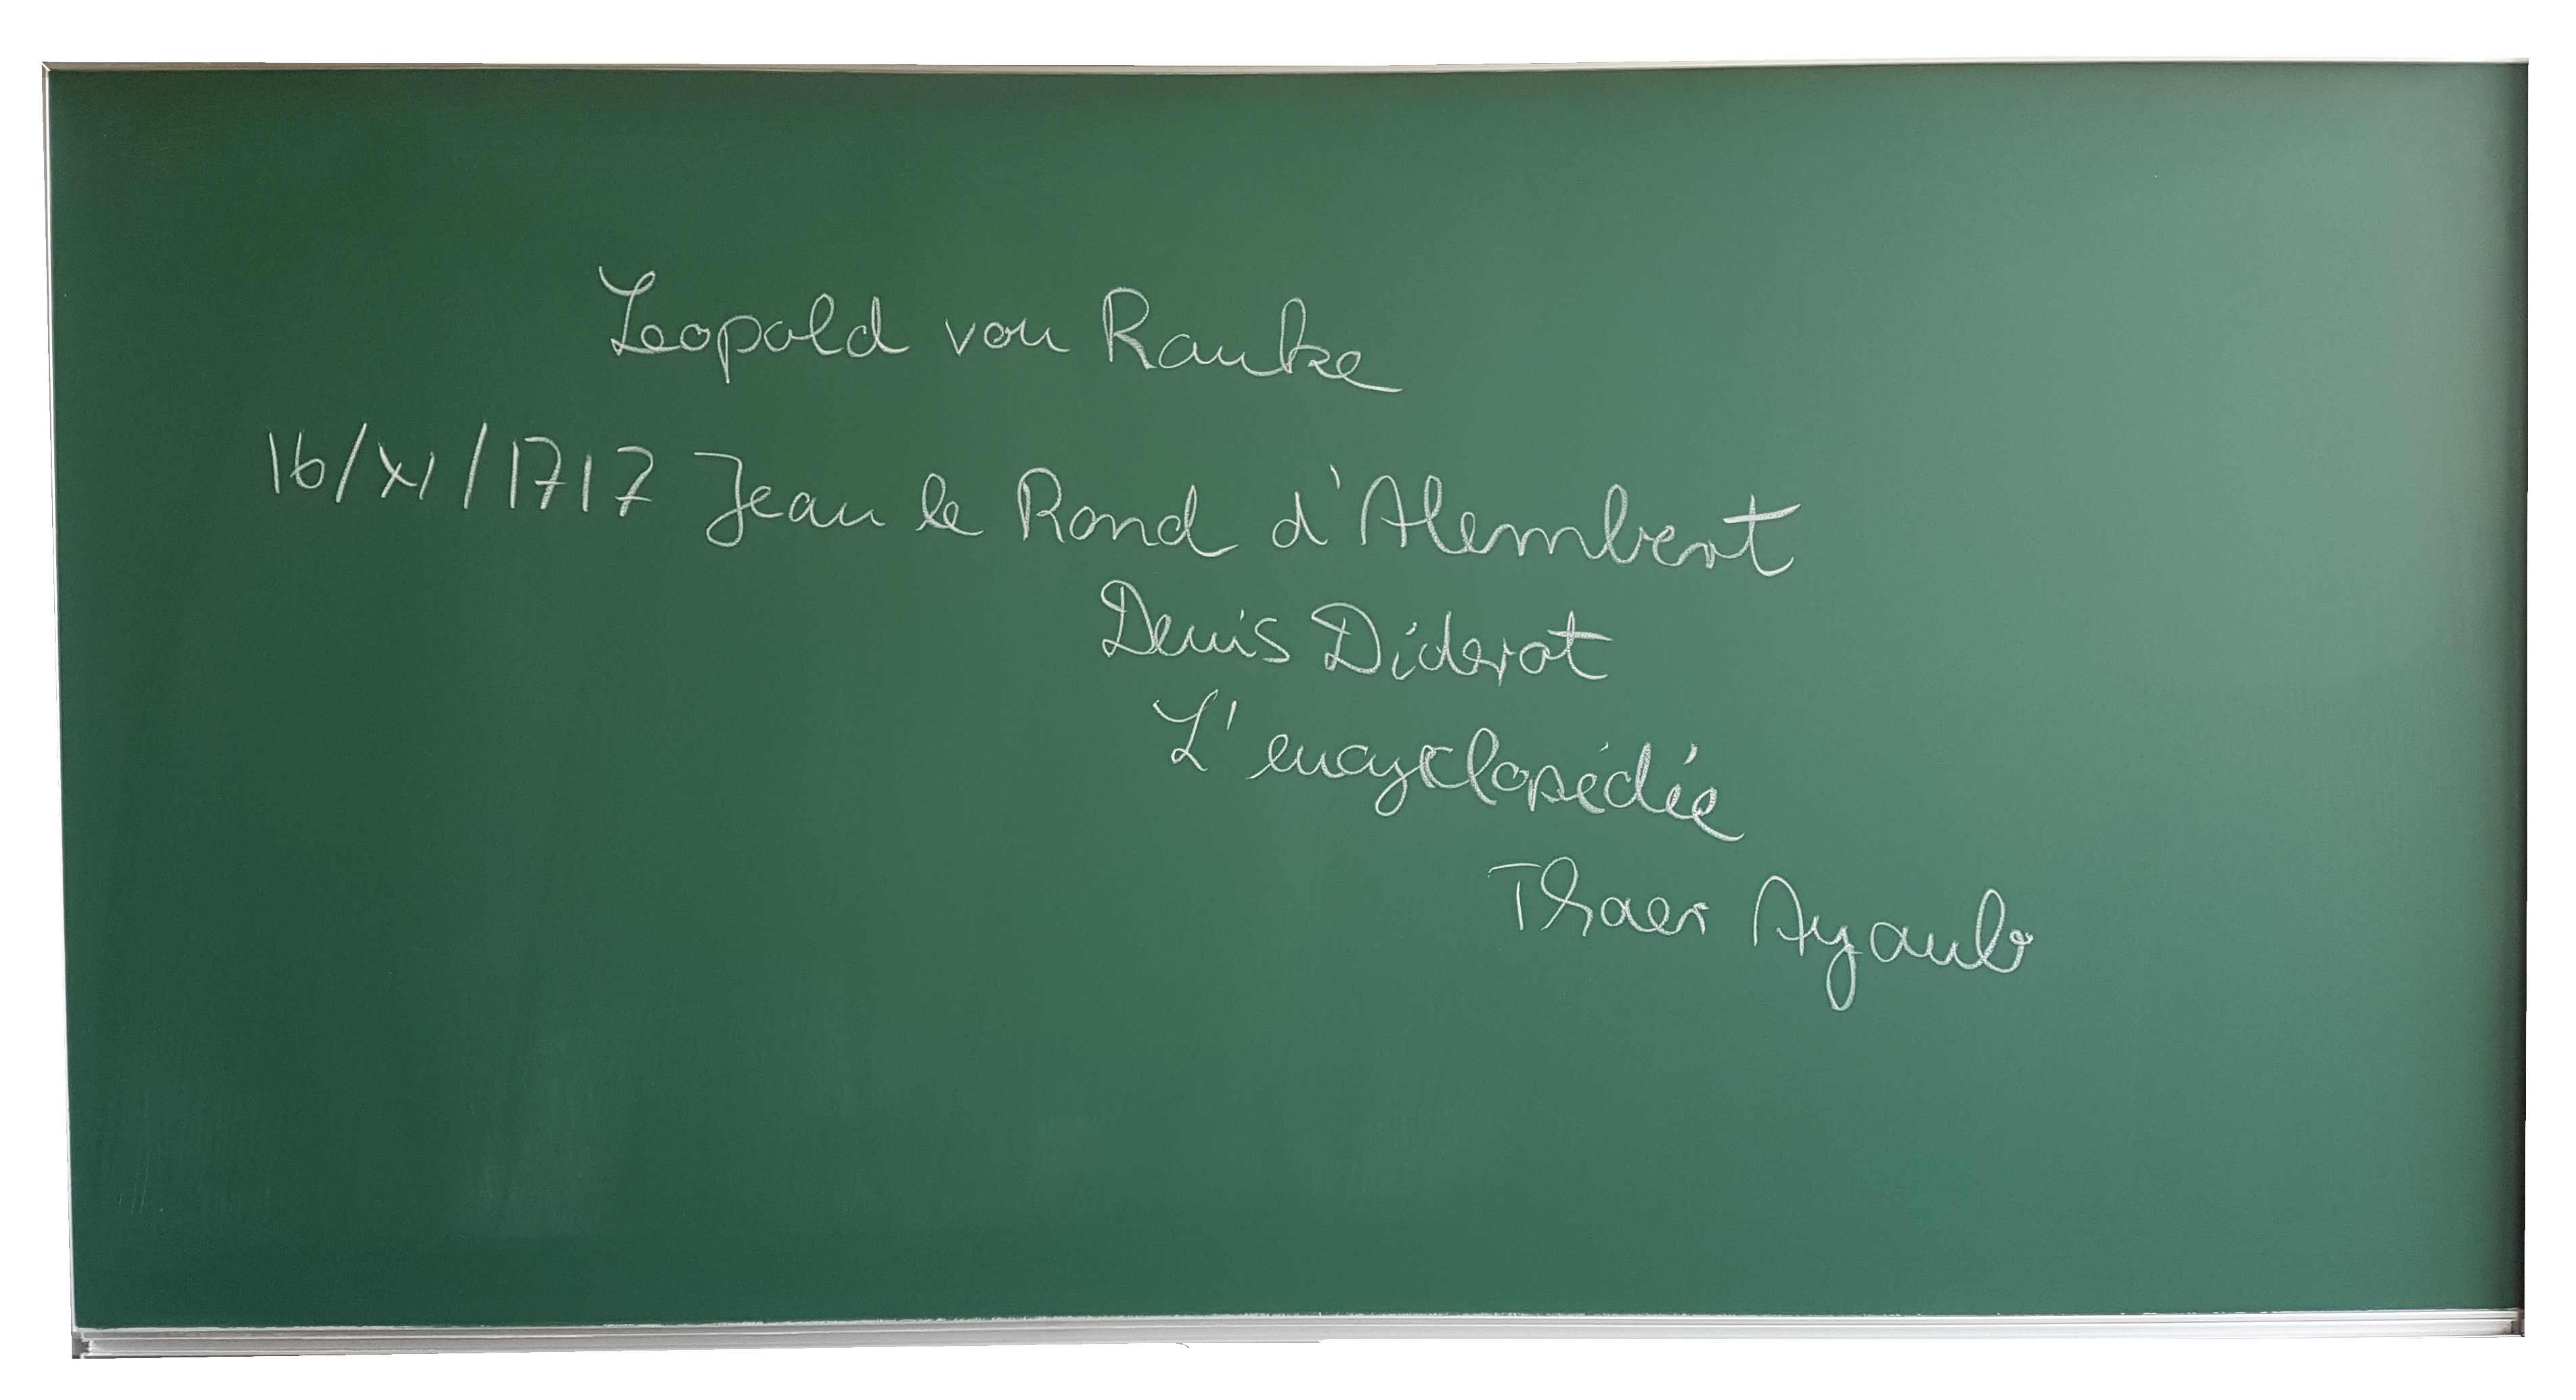 Leopold von Ranke
16/XI/1717 Jean le Rond d'Alembert
Denis Diderot
L'encyclopédie
Thaer Ayaub